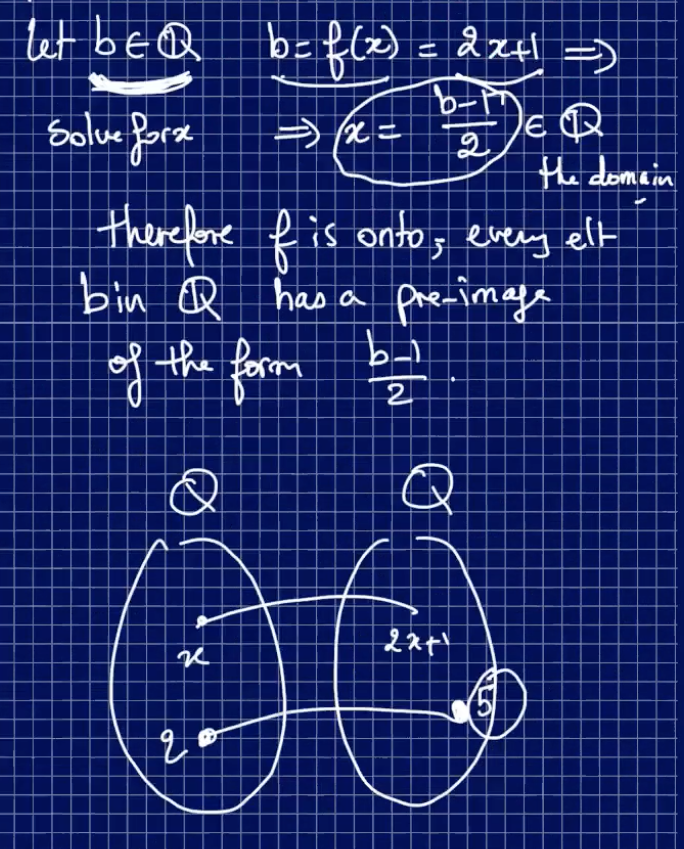 let b ∈ ℚ b = f(x) = 2x+1 ⇒
Solve for x ⇒ x = (b-1)/2 ∈ ℚ
the domain
therefore f is onto; every elt
b in ℚ has a pre-image
of the form (b-1)/2 .
ℚ ℚ
x 2x+1
2 5